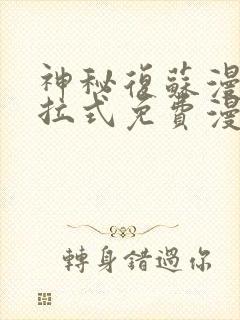 神秘復蘇漫
拉式免費漫
轉身錯過你